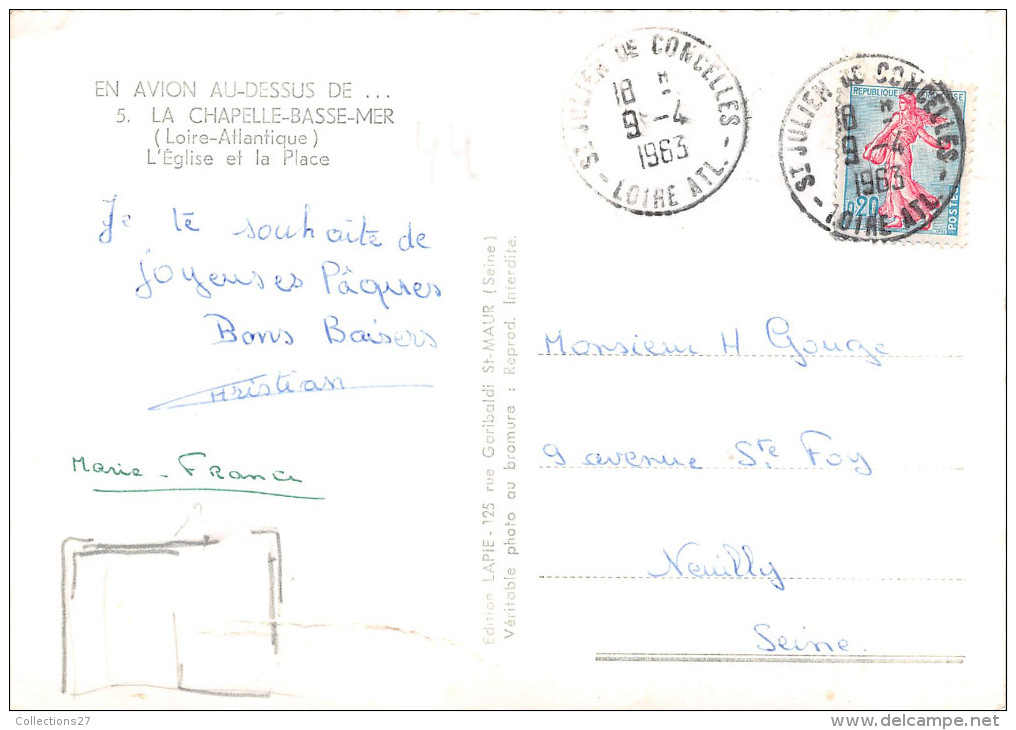 EN AVION AU-DESSUS DE ...
5. LA CHAPELLE-BASSE-MER
(Loire-Atlantique)
L'Église et la Place
44
Je te souhaite de
Joyeuses Pâques
Bons Baisers
Christian
Marie-France
Edition LAPIE - 125 rue Garibaldi St-MAUR (Seine)
Véritable photo au bromure : Reprod. Interdite.
ST JULIEN DE CONCELLES
18 H
9 - 4
1963
- LOIRE ATL. -
ST JULIEN DE CONCELLES
18 H
9 - 4
1963
- LOIRE ATL. -
REPUBLIQUE FRANÇAISE
0,20
POSTES
Monsieur H Gouge
9 avenue Ste Foy
Neuilly
Seine.
Collections27
delcampe.net